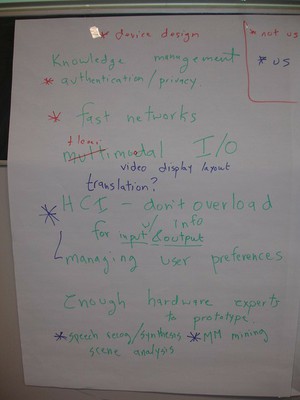 * device design
* not us
* us
Knowledge management
* authentication/privacy
* fast networks
flexi
multimodal I/O
video display layout
translation?
* HCI - don't overload
w/ info
for input & output
managing user preferences
Enough hardware experts
to prototype
* speech recog/synthesis * MM mining
scene analysis